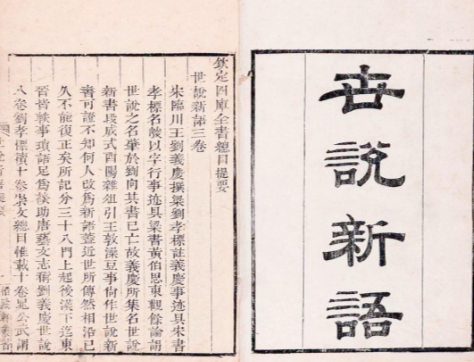 世說新語
欽定四庫全書總目提要
世說新語三卷
宋臨川王劉義慶撰梁劉孝標註義慶事迹具宋書
孝標名峻以字行事迹具梁書黃伯思東觀餘論謂
世說之名肇於劉向其書已亡故義慶所集名世說
新書段成式酉陽雜俎引王敦澡豆事尚作世說新
書可證不知何人改爲新語蓋近世所傳然相沿已
久不能復正矣所記分三十八門上起後漢下迄東
晉皆軼事瑣語足爲談助唐藝文志稱劉義慶世說
八卷劉孝標續十卷崇文總目惟載十卷晁公武謂